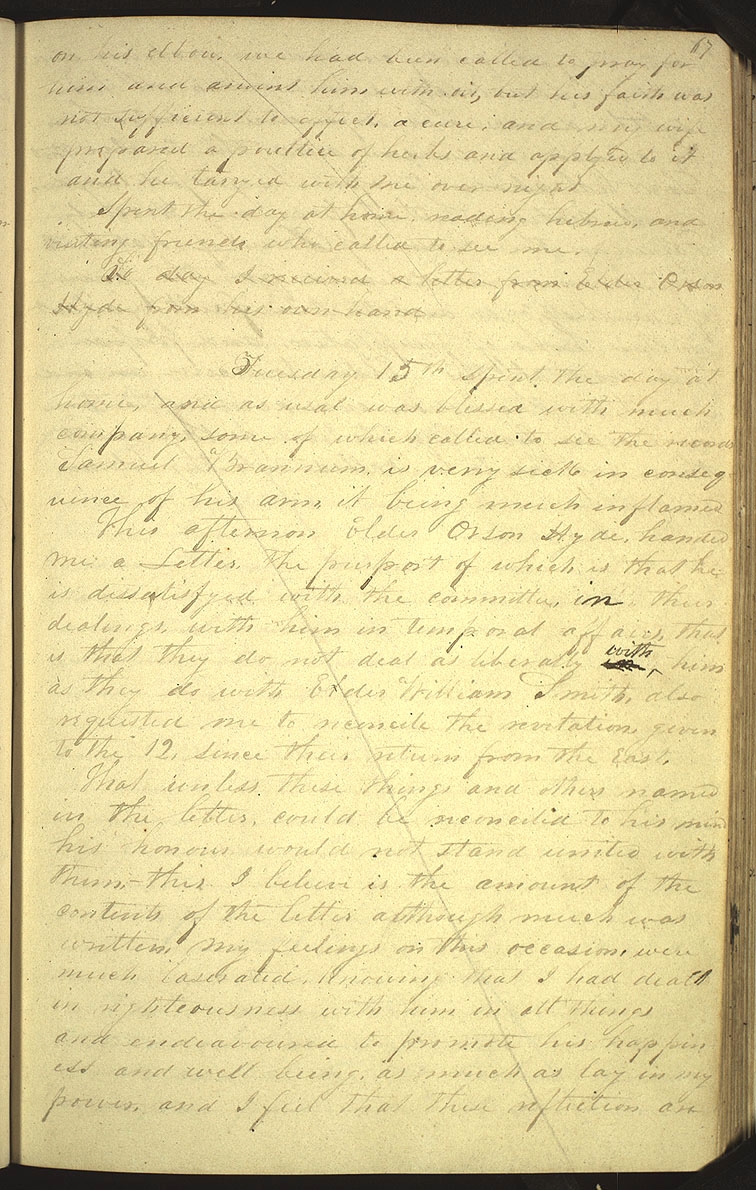 67
on his elbow, we had been called to pray for
him and anoint him with oil, but his faith was
not sufficient to affect, a cure; and my wife
prepared a poultice of herbs and applyed to it
and he tarryed with me over night
Spent the day at home reading hebrew, and
visiting friends who called to see me.
To day I received a letter from Elder Orson
Hyde from his own hand
Tuesday 15th spent the day at
home, and as usal was blessed with much
company, some of which called to see the records
Samuel Brannum, is very sick in conseq-
uence of his arm, it being much inflamed
This afternoon Elder Orson Hyde, handed
me a Letter, the purport of which is that he
is dissatisfyed with the committee, in their
dealings, with him in temporal affairs, that
is that they do not deal as liberally with him
as they do with Elder William Smith, also
requested me to reconcile the revelation, given
to the 12, since their return from the East,
That unless these things and others named
in the letter, could be reconciled to his mind
his honour would not stand united with
them,– this I believe is the amount of the
contents of the letter although much was
written, my feelings on this occasion, were
much laserated, knowing that I had dealt
in righteousness with him in all things
and endeavoured to promote his happin
ess and well being, as much as lay in my
power, and I feel that these reflection are